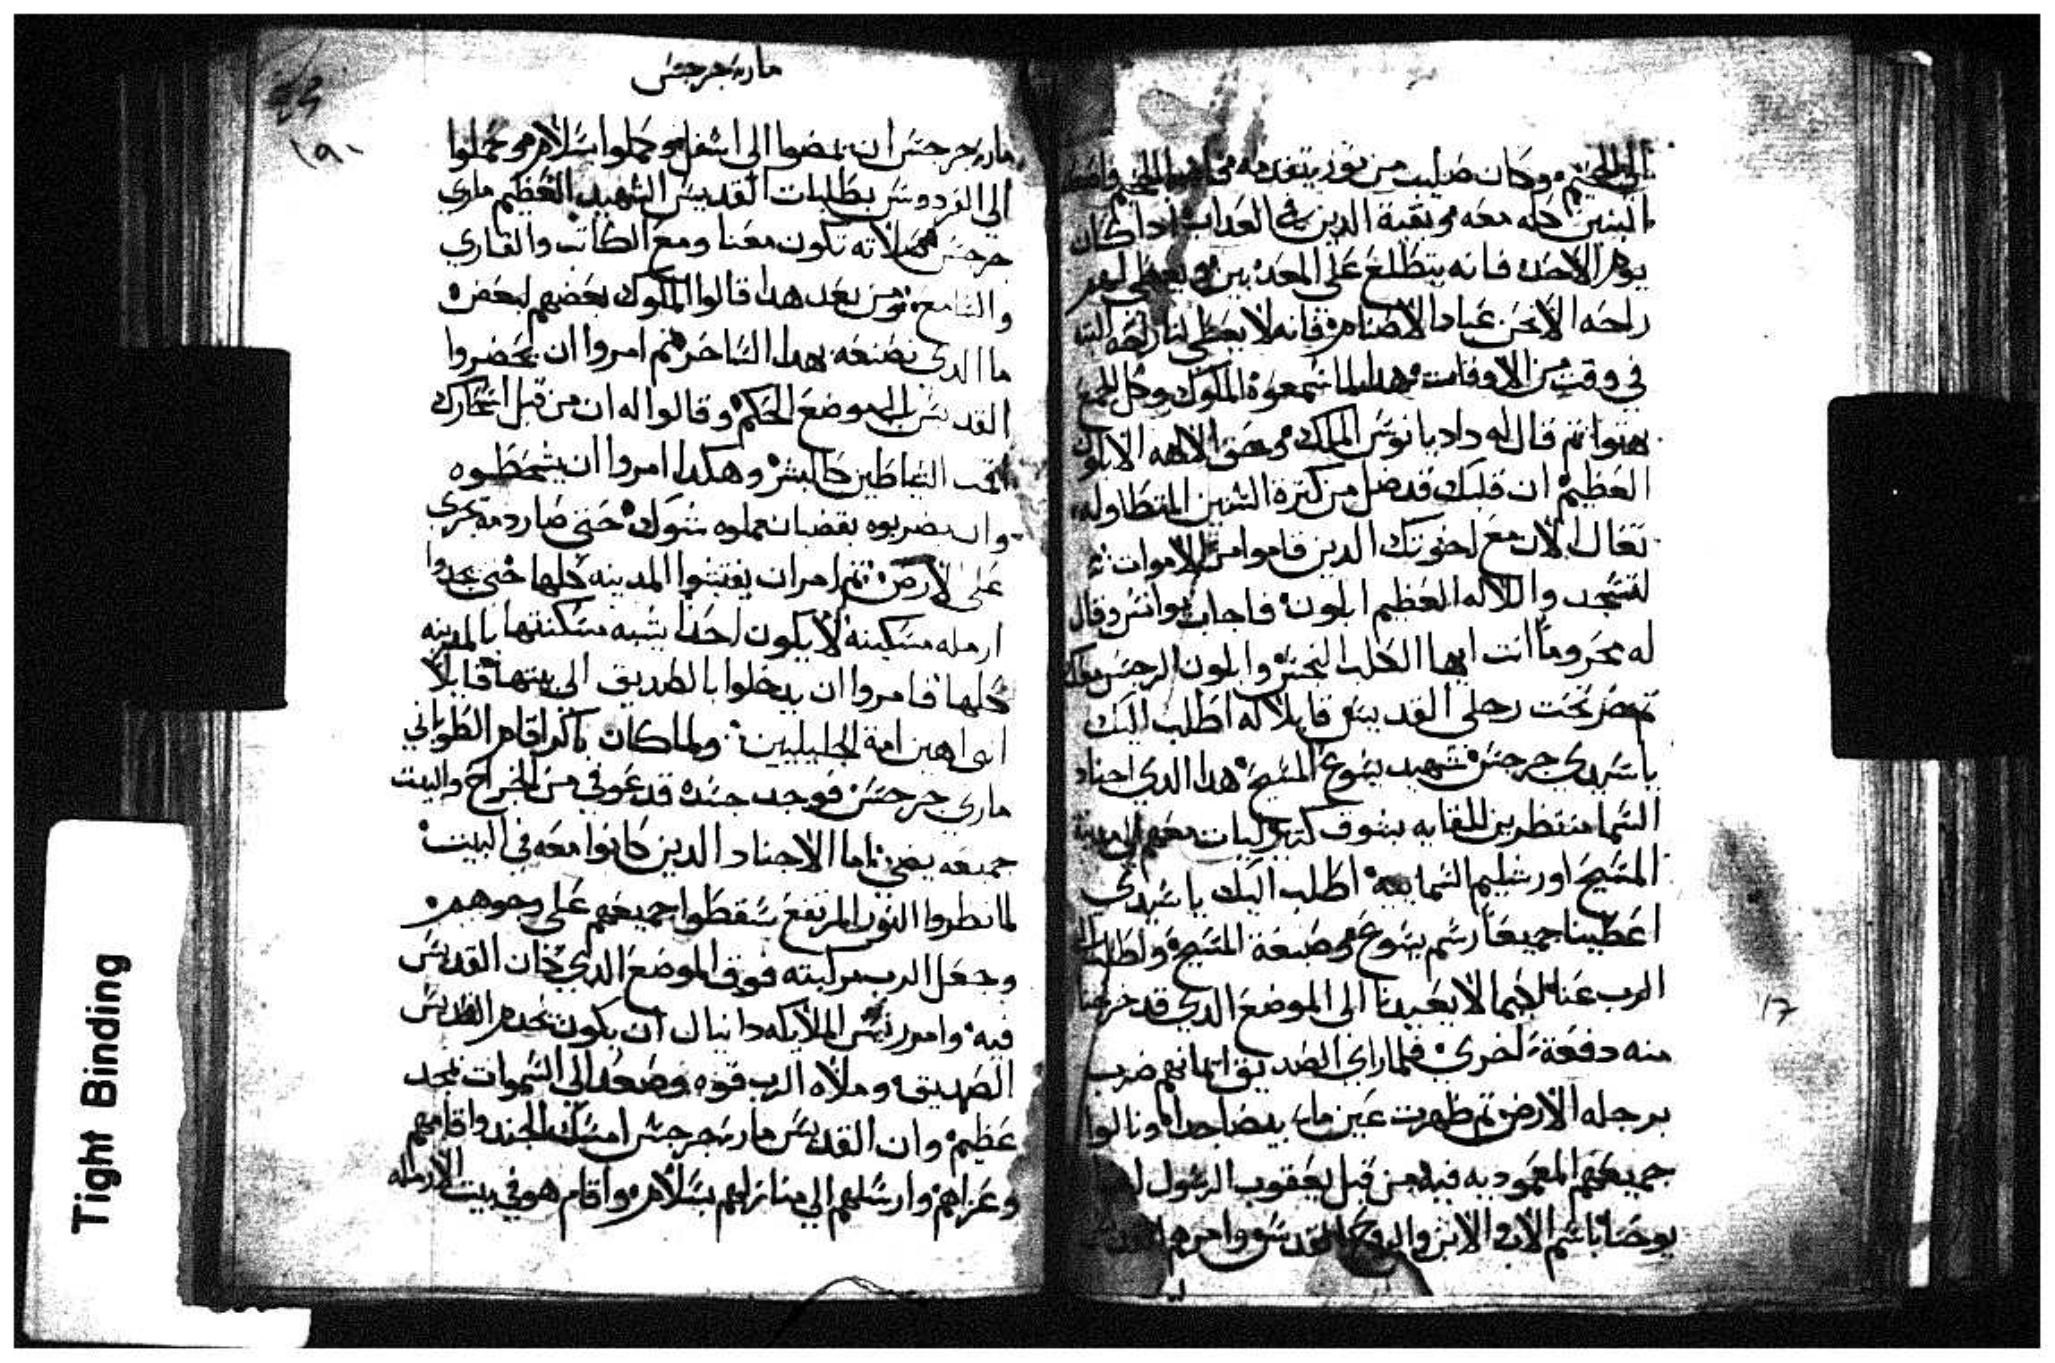 الى الجحيم وكان صليب من نور يتقدمه في
السنين كله معه وبقية الدين في العداب ادا كان
يوم الاحد فانه يتطلع على المعدبين ويعطي لهم
راحه الا نحن عباد الاصنام فانه لا يعطي لنا راحه البته
في وقت من الاوقات هدا لما سمعوه الملوك وكل الجمع
بهتوا تم قال له داديانوس الملك وحق الالهه الابلون
العظيم ان قلبك قد ضل من كترة السنين المتطاوله
تعال الان مع اخوتك الدين قاموا من الاموات
لتسجدوا للاله العظيم ابلون فاجاب وانتهر وقال
له محروما انت ايها الكلب النجس وابلون الرجس معك
تحت رجلي القديس قايلا له اطلب اليك
يا سيدي جرجس شهيد يسوع المسيح هدا الدي اجناد
السما منتظرين للقايه بشوق كتير ليات معهم الى مدينة
المسيح اورشليم السماييه اطلب اليك يا سيدي
اعطينا جميعا رسم يسوع وصبغة المسيح واطلب الى
الرب عنا لكيما لا يعيدنا الى الموضع الدي قد خرجنا
منه دفعة اخرى فلما راي الصديق ايمانهم ضرب
برجله الارض تم ظهرت عين ماء بيضا جدا ونالوا
جميعهم المعموديه فيه من قبل يعقوب الرسول
يوحنا باسم الاب والابن والروح القدس وامرهم
١٦
ماري جرجس
١٩٠
ماري جرجس ان يمضوا الى اسفل وكملوا بسلام وحملوا
الى الفردوس بطلبات القديس الشهيد العظيم ماري
جرجس صلاته تكون معنا ومع الكاتب والقاري
والسامع ومن بعد هدا قالوا الملوك بعضهم لبعض
ما الدي نصنعه بهدا الساحر تم امروا ان يحضروا
القديس الى موضع الحكم وقالوا له ان من قبل اسحارك
اتت الشياطين كالبشر وهكدا امروا ان يشحططوه
وان يضربوه بقضبان مملوه شوك حتى صار دمه يجري
على الارض تم امر ان يفتشوا المدينه كلها حتى يجدوا
ارمله مسكينه لا يكون احدا يشبه مسكنتها بالمدينه
كلها فامروا ان يدخلوا بالصديق الى بيتها قايلا
انى اهين امة الجليليين ولما كان باكر اقام الطوباني
ماري جرجس فوجد جسده قد عوفي من الجراح والبيت
جميعه يضي اما الاجناد الدين كانوا معه في البيت
لما نظروا النور المرتفع سقطوا جميعهم على وجوههم
وجعل الرب مركبته فوق الموضع الدي كان القديس
فيه وامر رييس الملايكه دانيال ان يكون يخدم القديس
الصديق وملاه الرب قوه وصعد الى السموات بمجد
عظيم وان القديس ماري جرجس امسك الجند واقامهم
وعزاهم وارسلهم الى منازلهم بسلام واقام هو في بيت الارمله
Tight Binding